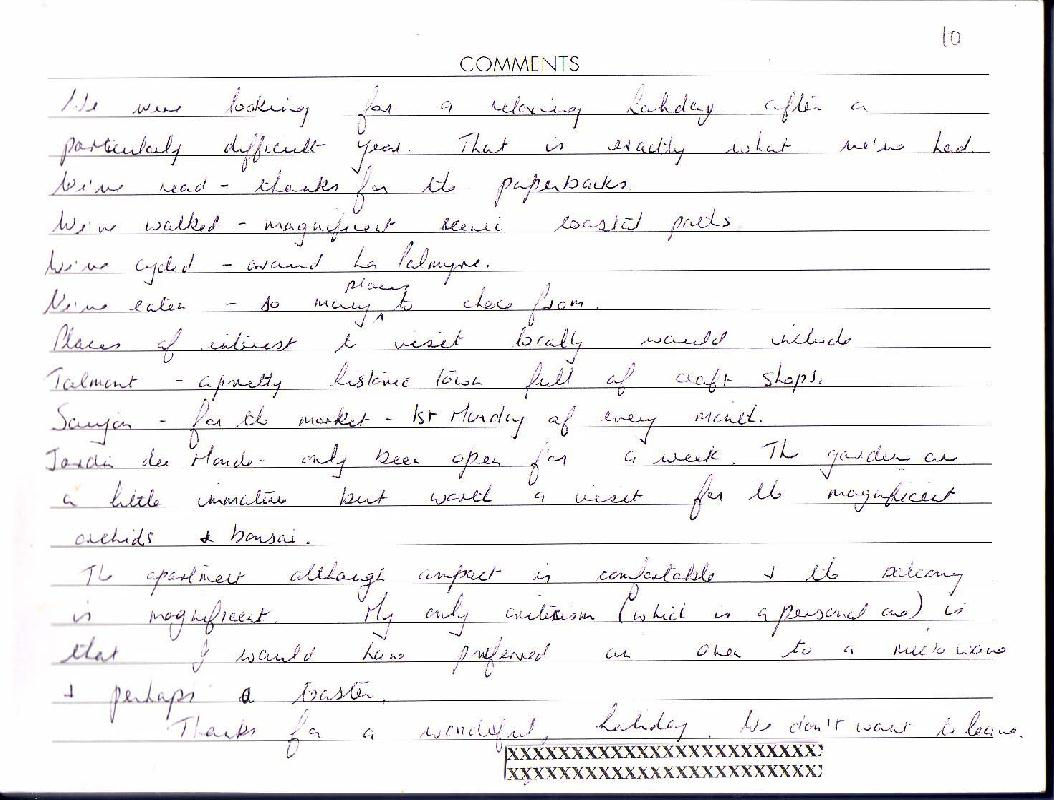 10
COMMENTS
We were looking for a relaxing holiday after a
particularly difficult year. That is exactly what we've had.
We've read - thanks for the paperbacks.
We've walked - magnificent scenic coastal paths.
We've cycled - around La Palmyre.
places
We've eaten - so many ^ to chose from.
Places of interest to visit locally would include
Talmont - a pretty historic town full of craft shops.
Saujon - for the market - 1st Monday of every month.
Jardin des Monde - only been open for a week. The garden are
a little immature but worth a visit for the magnificent
orchids & bonsai.
The apartment although compact is comfortable & the balcony
is magnificent. My only criticism (which is a personal one) is
that I would have preferred an oven to a microwave
& perhaps a toaster.
Thanks for a wonderful holiday. We don't want to leave.
XXXXXXXXXXXXXXXXXXXXXXXX
XXXXXXXXXXXXXXXXXXXXXXXX